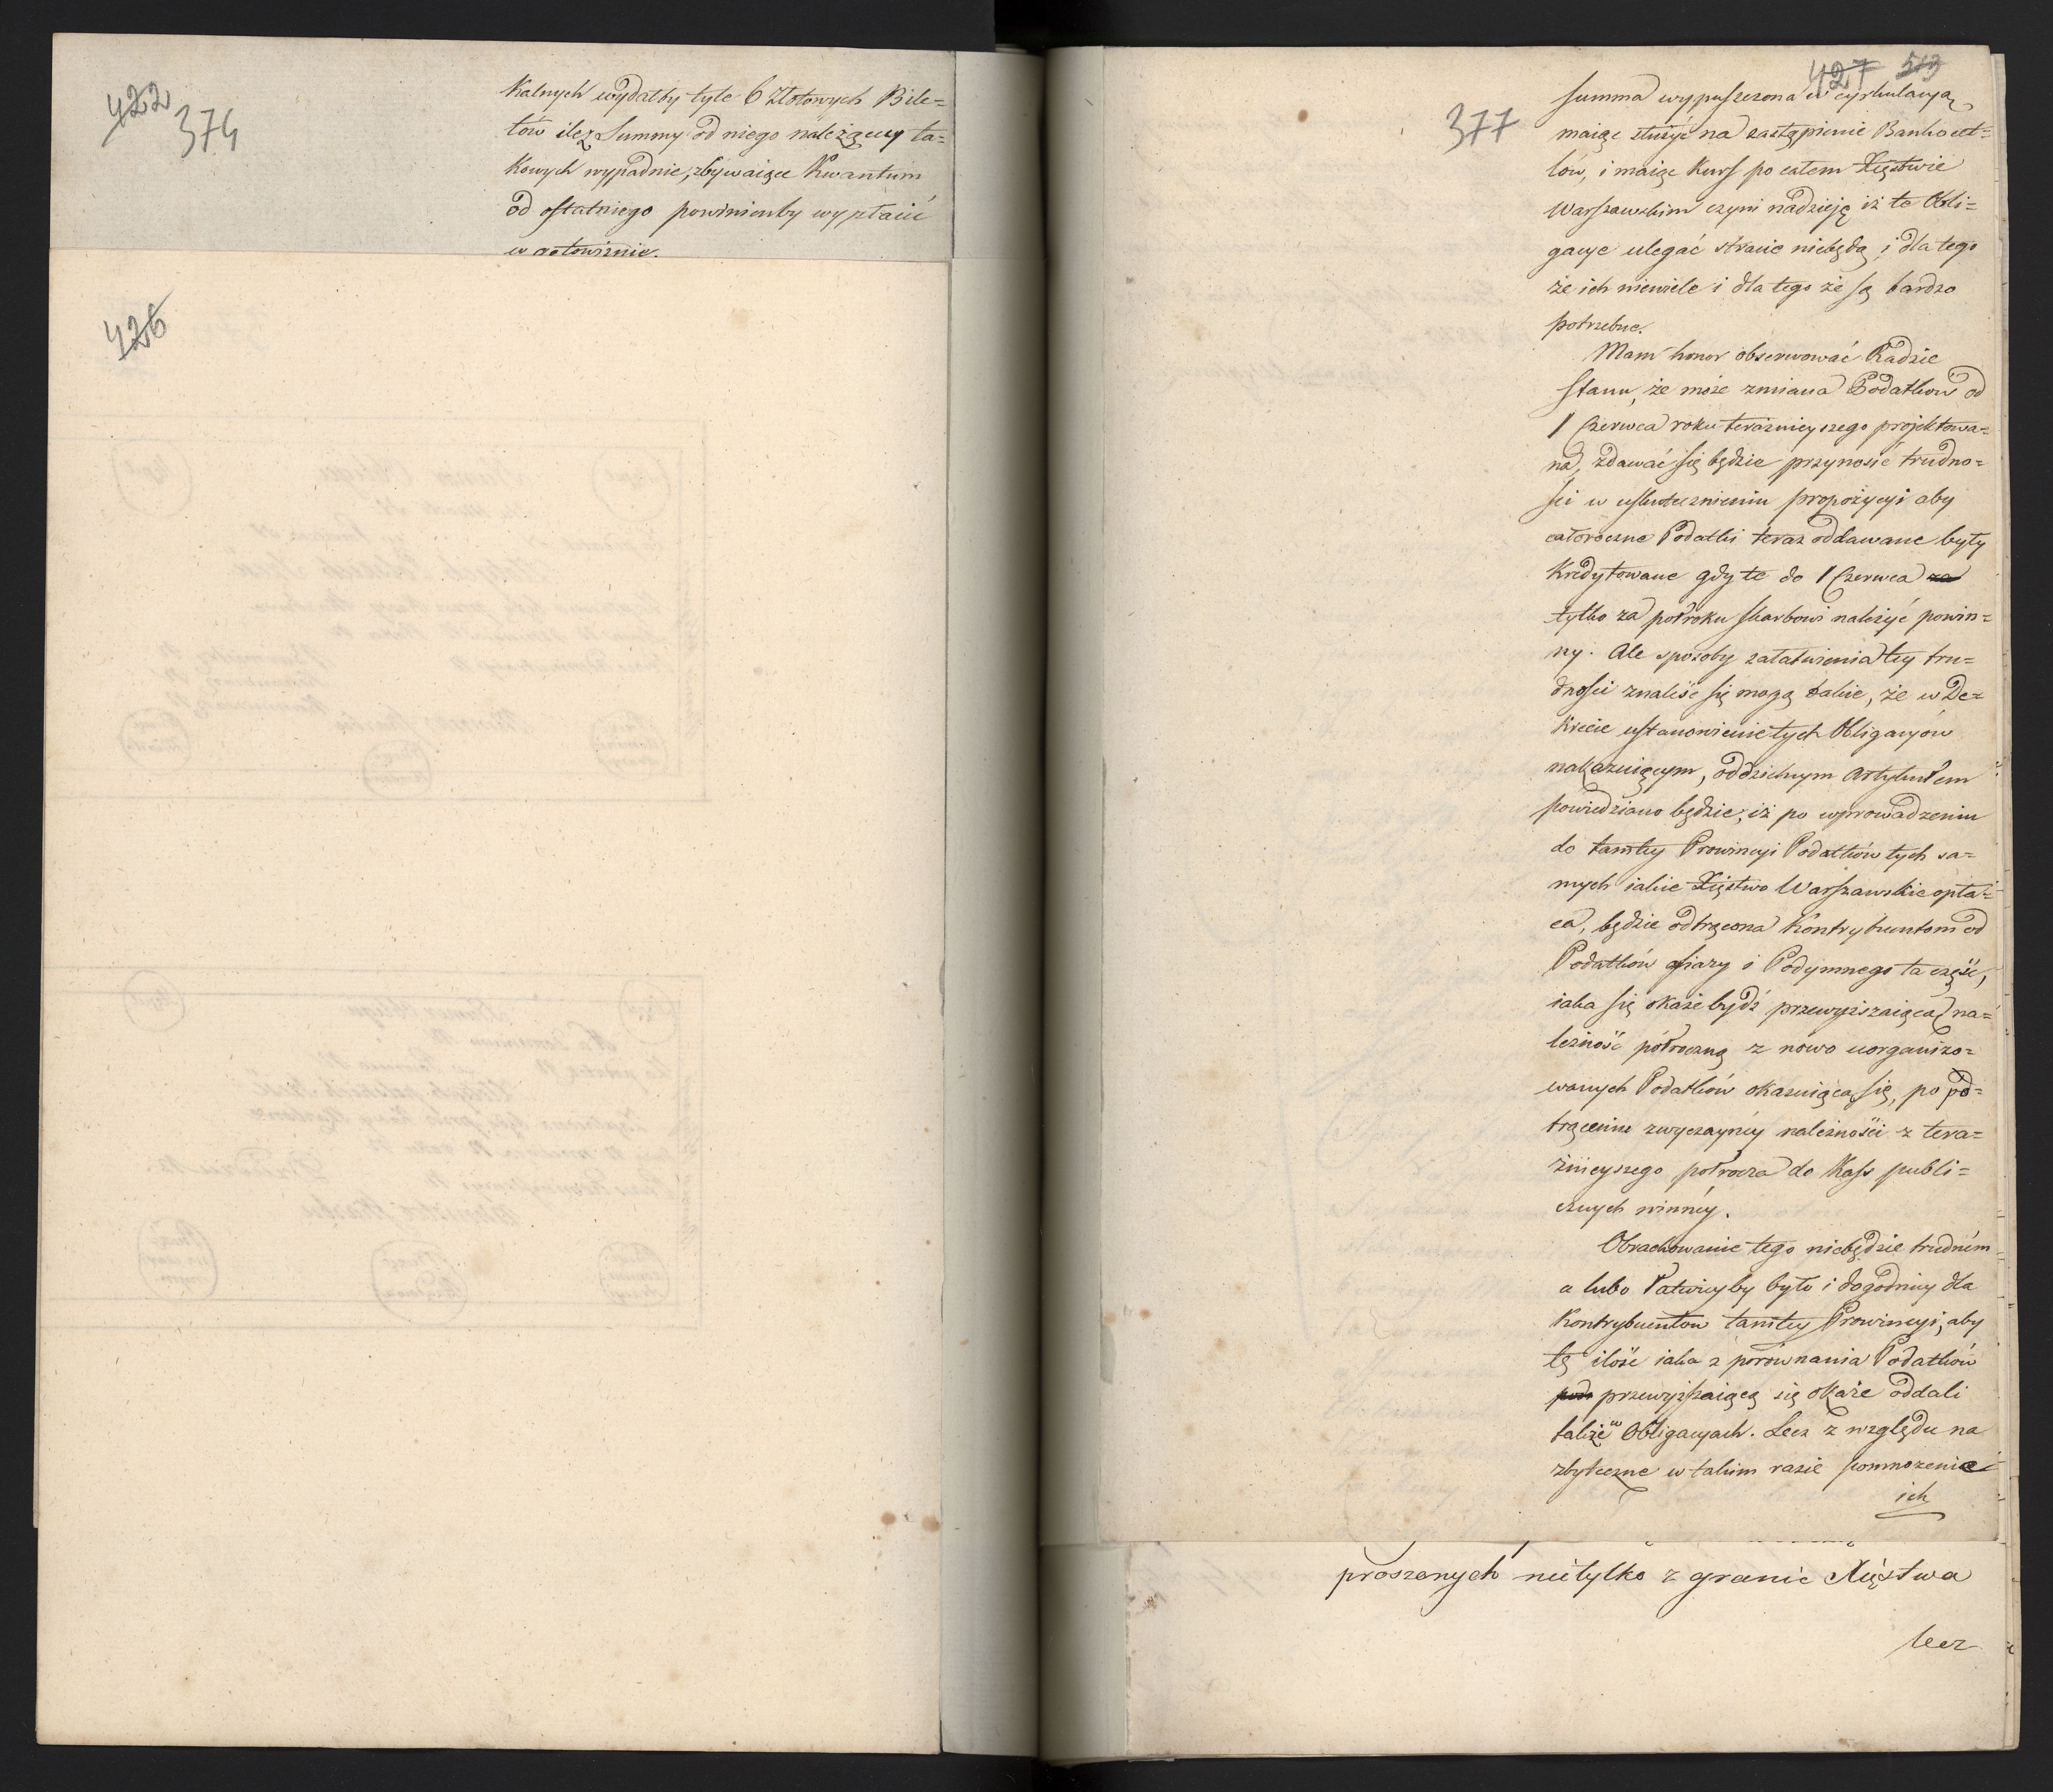 422
374
kalnych wydałby tyle 6 Złotowych Bile=
tów ile z Summy od niego należącey ta=
kowych wypadnie, zbywaiące Kwantum
od ostatniego powinienby wypłacić
w gotowiznie.
426
427 513
377
summa wypuszczona w cyrkulacyą,
maiąc służyć na zastąpienie Bankocet=
lów, i maiąc Kurs po całem Xięstwie
Warszawskim czyni nadzieję iż te Obli=
gacye ulegać stracie niebędą, i dla tego
że ich niewiele i dla tego że są bardzo
potrzebne.
Mam honor obserwować Radzie
Stanu, że może zmiana Podatków od
1 Czerwca roku teraźnieyszego projektowa=
na, zdawać się będzie przynosić trudno=
ści w uskutecznieniu propozycyi aby
całoroczne Podatki teraz oddawane były
Kredytowane gdy te do 1 Czerwca za
tylko za półroku skarbowi należyć powin=
ny. Ale sposoby załatwienia tey tru=
dności znaliść się mogą takie, że w De=
krecie ustanowienie tych Obligacyów
nakazuiącym, oddzielnym Artykułem
powiedziano będzie, iż po wprowadzeniu
do tamtey Prowincyi Podatków tych sa=
mych iakie Xięstwo Warszawskie opła=
ca, będzie odtrącona Kontrybuentom od
Podatków ofiary i Podymnego ta część,
iaka się okaże bydź przewyższaiąca na=
leżność półroczną z nowo uorganizo=
wanych Podatków okazuiącą się, po po=
trąceniu zwyczayney należności z tera=
źnieyszego półrocza do Kass publi=
cznych winney.
Obrachowanie tego niebędzie trudném
a lubo łatwieyby było i dogodniey dla
Kontrybuentów tamtey Prowincyi, aby
tę ilość iaka z porównania Podatków
przewyższaiącą się okaże oddali
także w Obligacyach. Lecz z względu na
zbyteczne w takim razie pomnożenie
ich
proszonych nietylko z granic Xięstwa
lecz